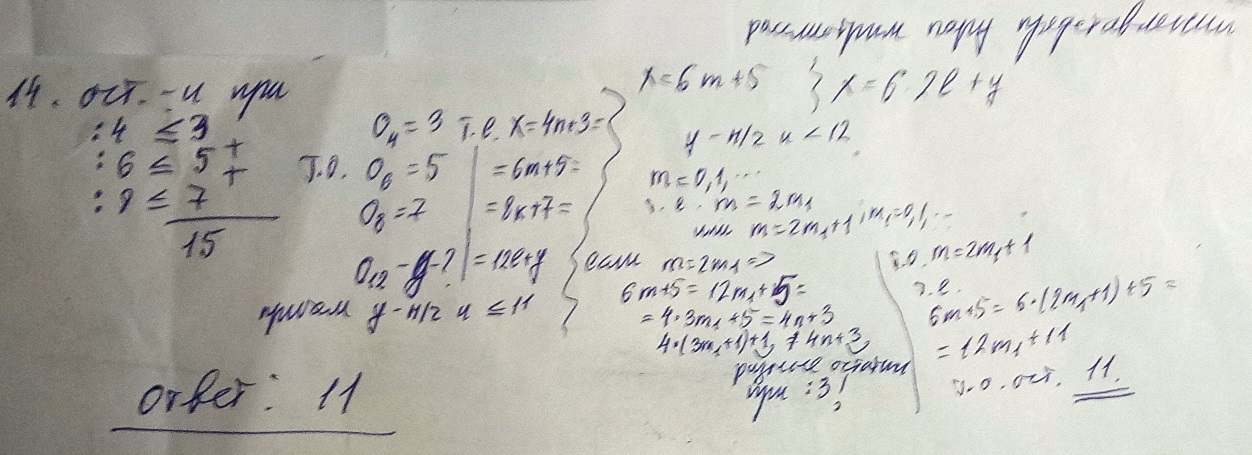 рассмотрим пару представлений
14. ост.-и при
:4 ≤ 3
:6 ≤ 5 +
:8 ≤ 7 +
15
Т.О.
O₄ = 3 т.е. x = 4n+3 =
O₆ = 5 = 6m+5 =
O₈ = 7 = 8k+7 =
O₁₂ - y - ? = 12l+y
причем y - н/г и ≤ 11
Ответ: 11
x = 6m+5 } x = 6·2l+y
y - н/г и < 12
m = 0,1,...
т.е. m = 2m₁
или m = 2m₁+1; m₁=0,1,..
если m = 2m₁ =>
6m+5 = 12m₁+5 =
= 4·3m₁+5 = 4n+3
4·(3m₁+1)+1, ≠ 4n+3,
разные остатки
при :3!
т.о. m = 2m₁+1
т.е.
6m+5 = 6·(2m₁+1)+5 =
= 12m₁+11
т.о. ост. 11.